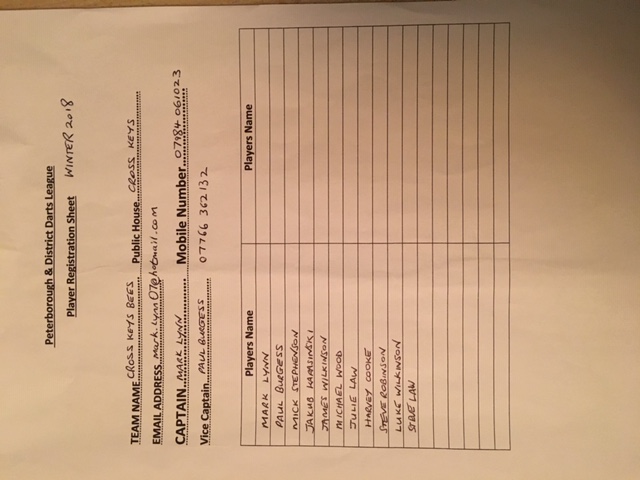 Peterborough & District Darts League
Player Registration Sheet WINTER 2018
TEAM NAME CROSS KEYS BEES Public House CROSS KEYS
EMAIL ADDRESS Mark.Lynn07@hotmail.com
CAPTAIN MARK LYNN Mobile Number 07984 061023
Vice Captain PAUL BURGESS 07766 362132
Players Name Players Name
MARK LYNN
PAUL BURGESS
MICK STEPHENSON
JAKUB KARASINSKI
JAMES WILKINSON
MICHAEL WOOD
JULIE LAW
HARVEY COOKE
STEVE ROBINSON
LUKE WILKINSON
STEVE LAW